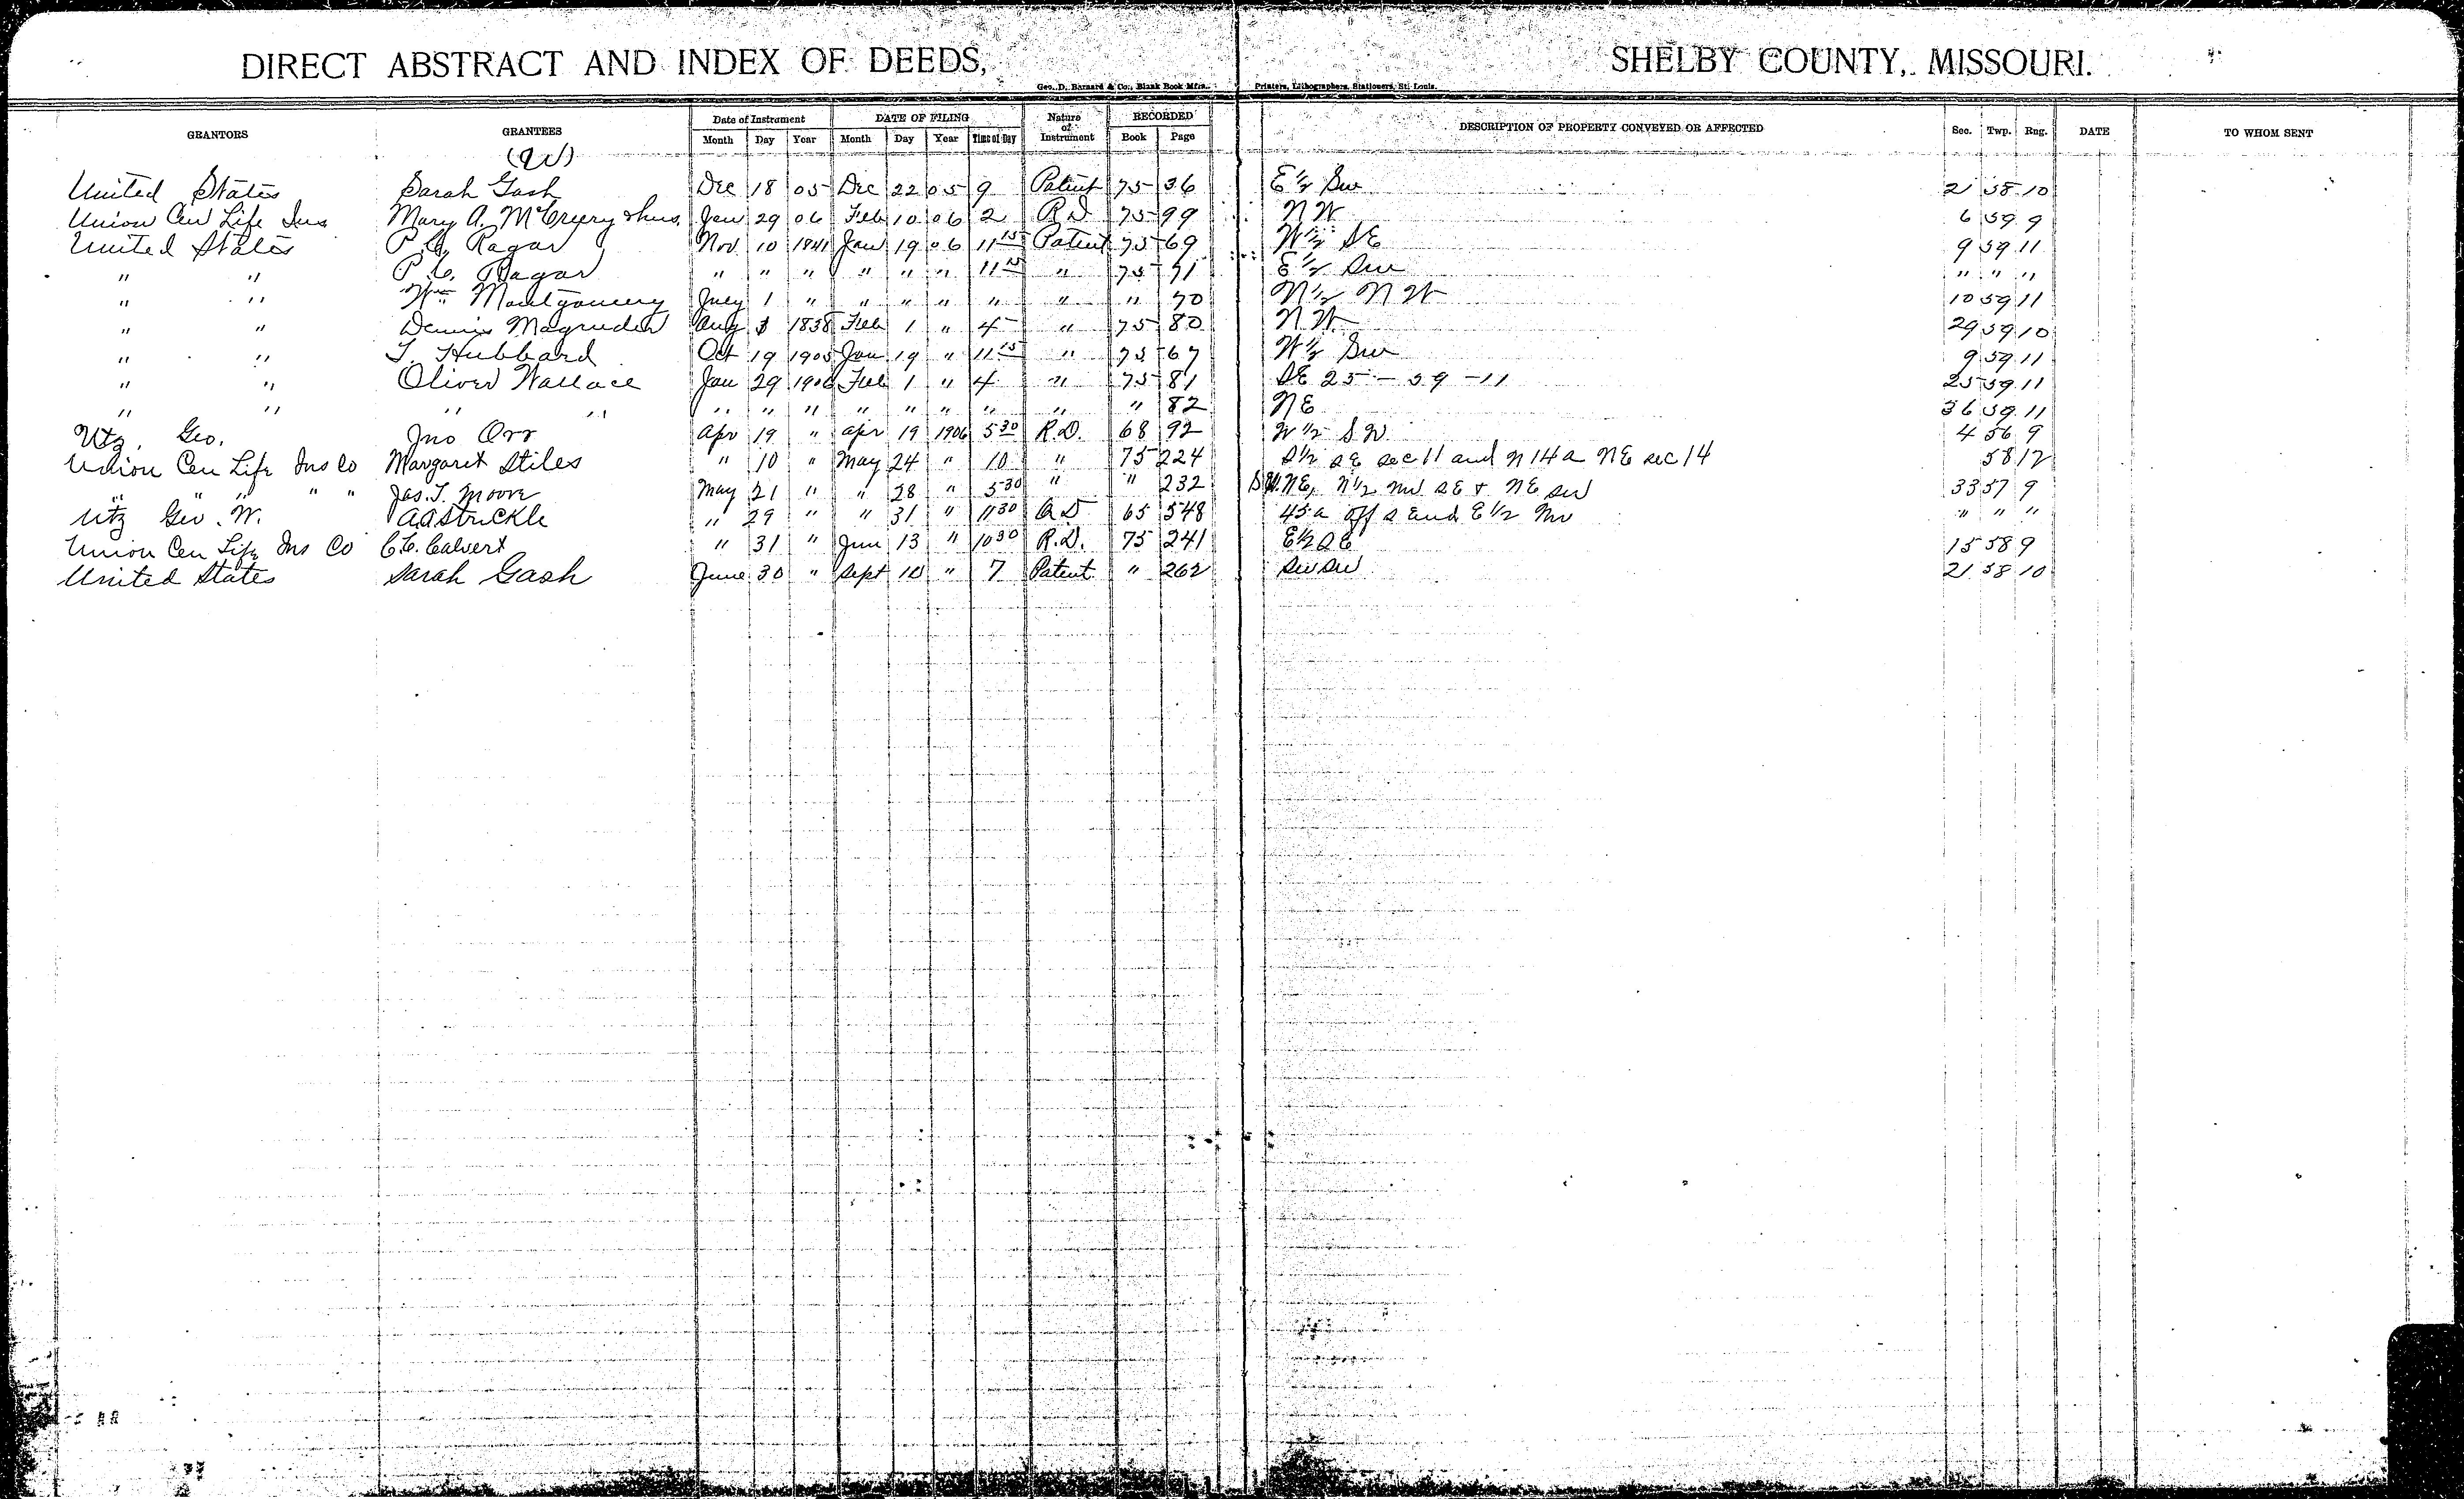 DIRECT ABSTRACT AND INDEX OF DEEDS, SHELBY COUNTY, MISSOURI.
Geo. D. Barnard & Co., Blank Book Mfrs. Printers, Lithographers, Stationers, St. Louis.
GRANTORS GRANTEES Date of Instrument DATE OF FILING Nature of Instrument RECORDED DESCRIPTION OF PROPERTY CONVEYED OR AFFECTED Sec. Twp. Rng. DATE TO WHOM SENT
Month Day Year Month Day Year Time of Day Book Page
United States Sarah Gash Dec 18 05 Dec 22 05 9 Patent 75 36 E½ Sw 21 58 10
Union Cen Life Ins Mary A. McCreery & hus. Jan 29 06 Feb 10 06 2 R.D 75 99 NW 6 59 9
United States P. C. Ragar Nov 10 1841 Jan 19 06 11 15 Patent 75 69 W½ SE 9 59 11
" " P. C. Ragar " " " " " " 11 15 " 75 71 E½ Sw " " "
" " Wm Montgomery July 1 " " " " " " " 70 N½ NW 10 59 11
" " Dennis Magruder Aug 1838 Feb 1 " 4 " 75 80 NW 29 59 10
" " T. Hubbard Oct 19 1905 Jan 19 " 11 15 " 75 67 W½ Sw 9 59 11
" " Oliver Wallace Jan 29 1906 Feb 1 " 4 " 75 81 SE 25 - 59 - 11 25 59 11
" " " " " " " " " " " " " 82 NE 36 59 11
Utz, Geo. Jno Orr Apr 19 " Apr 19 1906 5 30 R.D. 68 92 W½ SW 4 56 9
Union Cen Life Ins Co Margaret Stiles " 10 " May 24 " 10 " 75 224 S½ SE sec 11 and N 14a NE sec 14 58 12
" " " " " Jas. T. Moore May 21 " " 28 " 5 30 " " 232 SW NE, N½ NW SE & NE SW 33 57 9
Utz Geo. W. A A Strickle " 29 " " 31 " 11 30 Q D 65 548 45a off S End E½ NW " " "
Union Cen Life Ins Co C. C. Calvert " 31 " Jun 13 " 10 30 R.D. 75 241 E½ SE 15 58 9
United States Sarah Gash June 30 " Sept 10 " 7 Patent " 262 SW SW 21 58 10